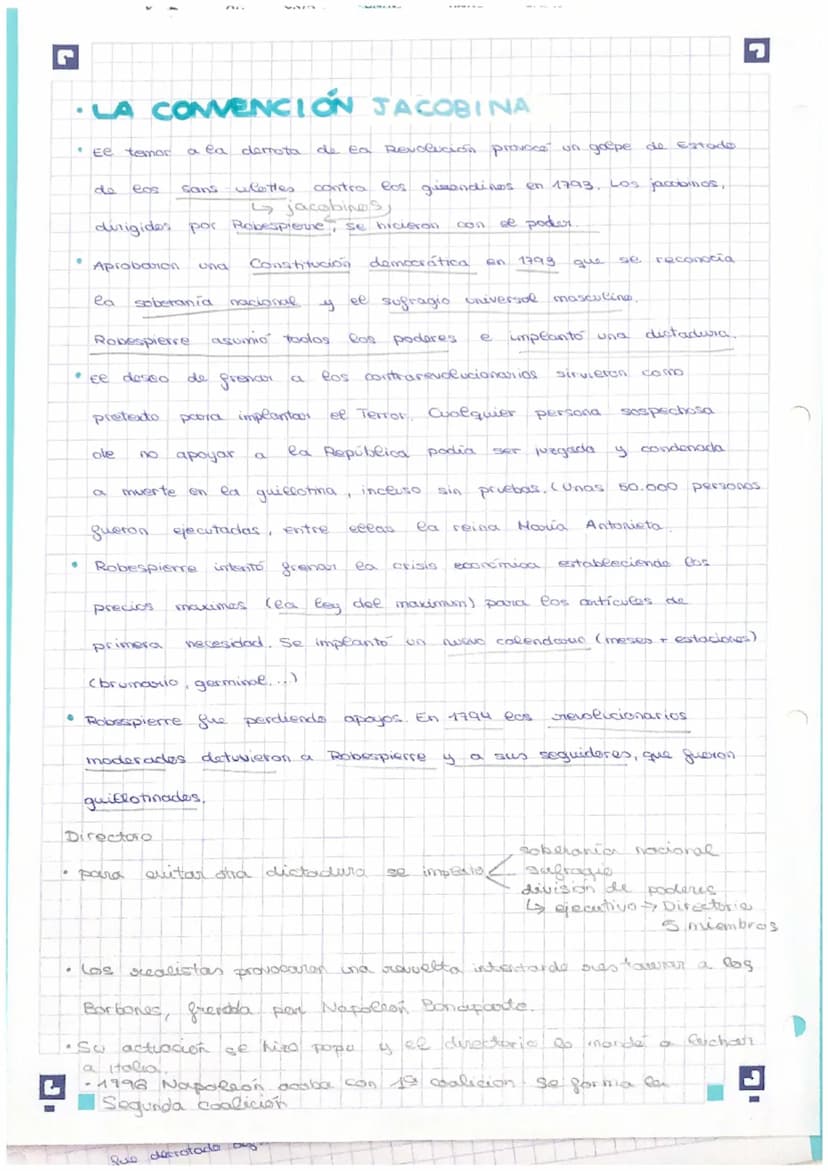 · LA CONVENCIÓN JACOBINA
• El temor a la derrota de la Revolución provocó un golpe de Estado
de los sans ulottes contra los girondinos en 1793. Los jacobinos,
↳ jacobinos,
dirigidos por Robespierre, se hicieron con el poder.
• Aprobaron una Constitución democrática en 1793 que se reconocía
la soberanía nacional y el sufragio universal masculino.
Robespierre asumió todos los poderes e implantó una dictadura.
• El deseo de frenar a los contrarevolucionarios sirvieron como
pretexto para implantar el Terror. Cualquier persona sospechosa
de no apoyar a la República podía ser juzgada y condenada
a muerte en la guillotina, incluso sin pruebas. (Unas 50.000 personas
fueron ejecutadas, entre ellas la reina María Antonieta.
• Robespierre intentó frenar la crisis económica estableciendo los
precios maximos (la ley del maximun) para los artículos de
primera necesidad. Se implantó un nuevo calendario (meses + estaciones)
(brumario, germinal...)
• Robespierre fue perdiendo apoyos. En 1794 los revolucionarios
moderados detuvieron a Robespierre y a sus seguidores, que fueron
guillotinados.
Directorio
soberanía nacional
• para evitar otra dictadura se < sufragio
división de poderes
↳ ejecutivo → Directorio
5 miembros
• Los realistas provocaron una revuelta intentando restaurar a los
Borbones, frenada por Napoleón Bonaparte.
• Su actuación se hizo popu y el directorio lo mandó a luchar
a Italia.
- 1796 Napoleón acaba con 1ª coalicion. Se forma la
Segunda coalición
fue derrotado